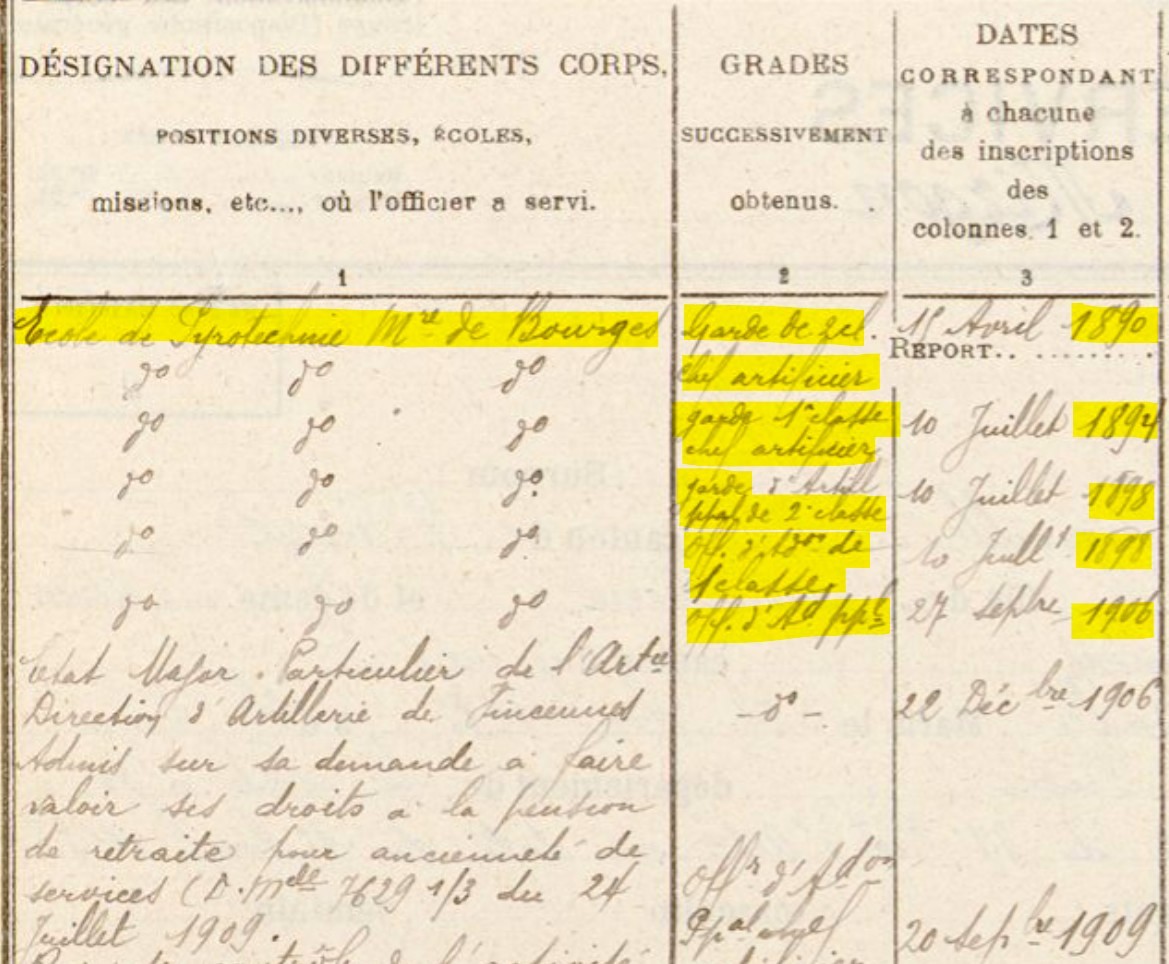 DÉSIGNATION DES DIFFÉRENTS CORPS,
POSITIONS DIVERSES, ÉCOLES,
missions, etc..., où l'officier a servi.
GRADES
SUCCESSIVEMENT
obtenus.
DATES
CORRESPONDANT
à chacune
des inscriptions
des
colonnes 1 et 2.
1 2 3
Ecole de Pyrotechnie Mre de Bourges Garde de 2 cl. 15 Avril 1890
REPORT..
do do do chef artificier
do do do garde 1e classe 10 Juillet 1894
chef artificier
do do do garde d'Artill 10 Juillet 1898
ppal de 2e classe
do do do Off. d'Adon de 10 Juillt 1898
1 classe
do do do Off. d'Ad ppl 27 Septbre 1906
Etat Major Particulier de l'Artie
Direction d'Artillerie de Vincennes - do - 22 Décbre 1906
Admis sur sa demande a faire
valoir ses droits à la pension
de retraite pour ancienneté de
services (D. Melle 7629 1/3 du 24 offr d'Adon
Juillet 1909. Ppal chef 20 Sepbre 1909